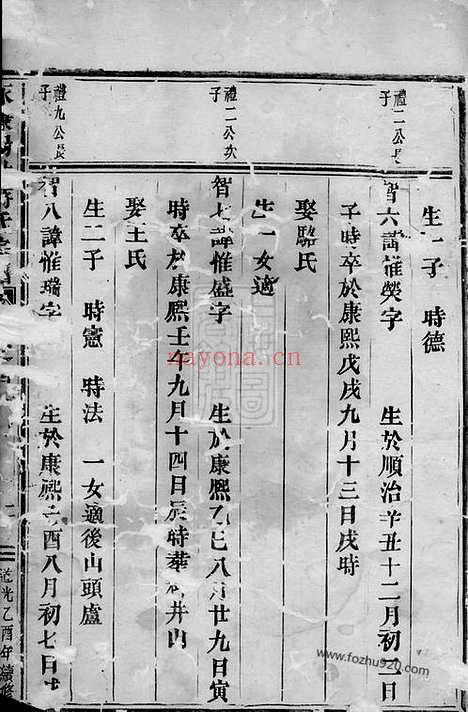 禮二公長子
禮二公次子
禮九公長子
生一子 時德
智六諱惟榮字 生於順治辛丑十二月初二日
子時卒於康熙戊戌九月十三日戌時
娶駱氏
生一女適
智七諱惟盛字 生於康熙乙巳八月廿九日寅
時卒於康熙壬午九月十四日辰時葬 井內
娶王氏
生二子 時憲 時法 一女適後山頭盧
智八諱惟瑞字 生於康熙辛酉八月初七日
道光乙酉年續修
nayona.cn
www.fozhu920.com